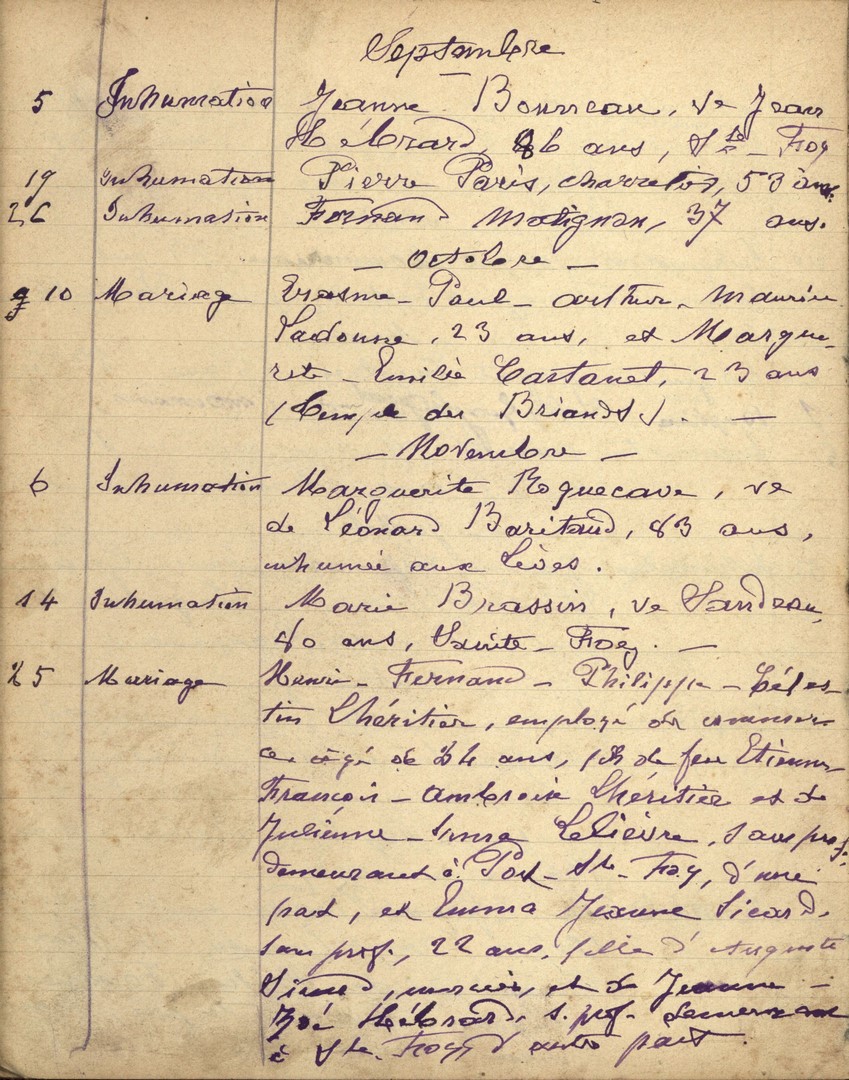 Septembre
5 Inhumation Jeanne Bonneau, ve Jean
Hébrard, 86 ans, Ste-Foy
19 Inhumation Pierre Paris, charretier, 53 ans.
26 Inhumation Fernand Matignon, 37 ans.
— Octobre —
10 Mariage Erasme-Paul-Arthur-Maurice
Ladonne, 23 ans, et Margue-
rite-Emilie Castanet, 23 ans
(Temple des Briands). —
— Novembre —
6 Inhumation Marguerite Roquecave, ve
de Léonard Baritaud, 83 ans,
inhumée aux Lèves.
14 Inhumation Marie Brassin, ve Sandeau,
80 ans, Sainte-Foy. —
25 Mariage Henri-Fernand-Philippe-Céles-
tin Lhéritier, employé de commer-
ce âgé de 24 ans, fils de feu Etienne-
François-Ambroise Lhéritier et de
Julienne- Lelièvre, sans prof.
demeurant à Port-Ste-Foy, d'une
part, et Emma Jeanne Sicard,
sans prof., 22 ans, fille d'Auguste
Sicard, et de Jeanne-
Zoé Hébrard, s. prof. demeurant
à Ste-Foy, d'autre part.